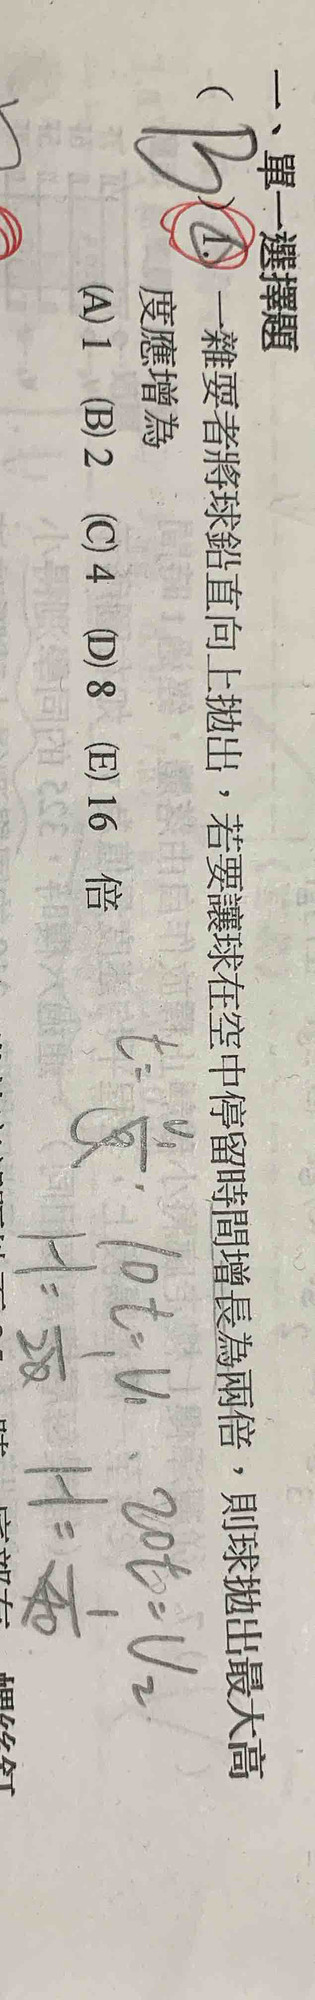 一、單一選擇題
( B ) 1. 一雜耍者將球鉛直向上拋出,若要讓球在空中停留時間增長為兩倍,則球拋出最大高
度應增為
(A) 1 (B) 2 (C) 4 (D) 8 (E) 16 倍
10t = V₁、20t = V₂